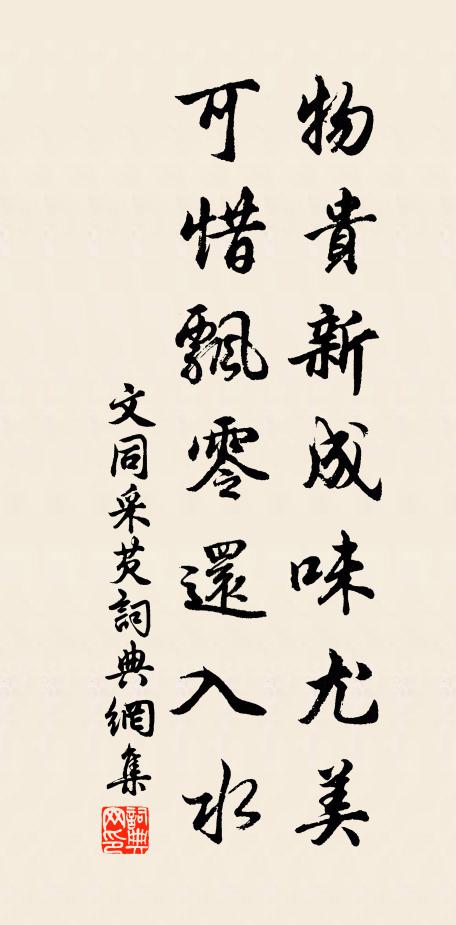 物貴新成味尤美
可惜飄零還入水
文同采芡詞典網集
詞典網印